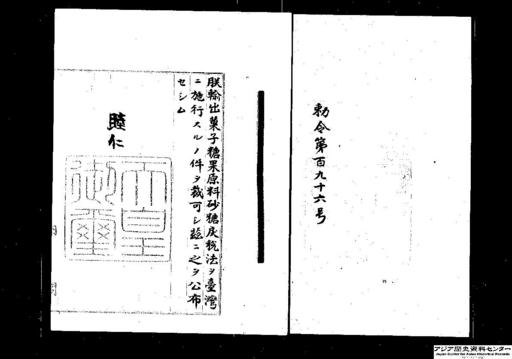 勅令第百九十六号
朕輸出菓子糖果原料砂糖戻税法ヲ臺灣
ニ施行スルノ件ヲ裁可シ茲ニ之ヲ公布
セシム
睦仁
天皇
御璽
アジア歴史資料センター
Japan Center for Asian Historical Records